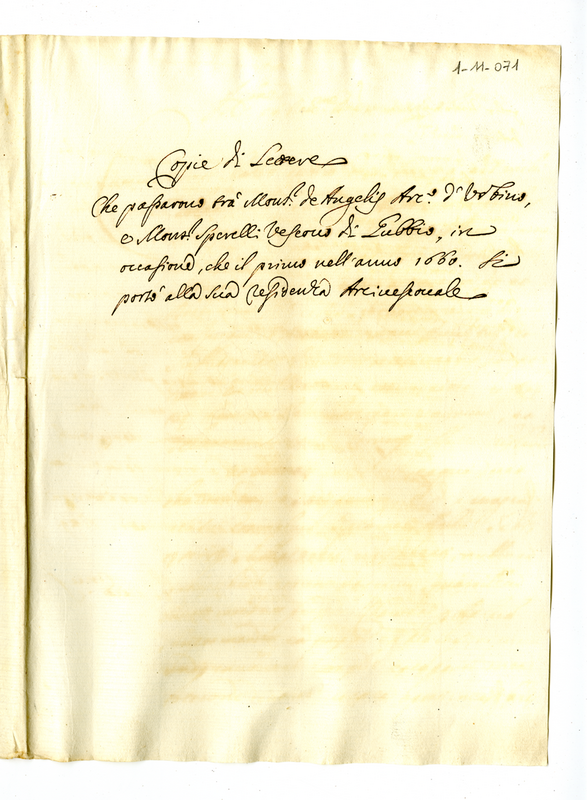 1-11-071
Copie di Lettere
Che passarono trà Mons.r de Angelis Arc.o d'Urbino,
e Mons.r Sperelli Vescouo di Gubbio, in
occasione, che il primo nell'anno 1660. si
portò alla sua residenza Arciuescouale